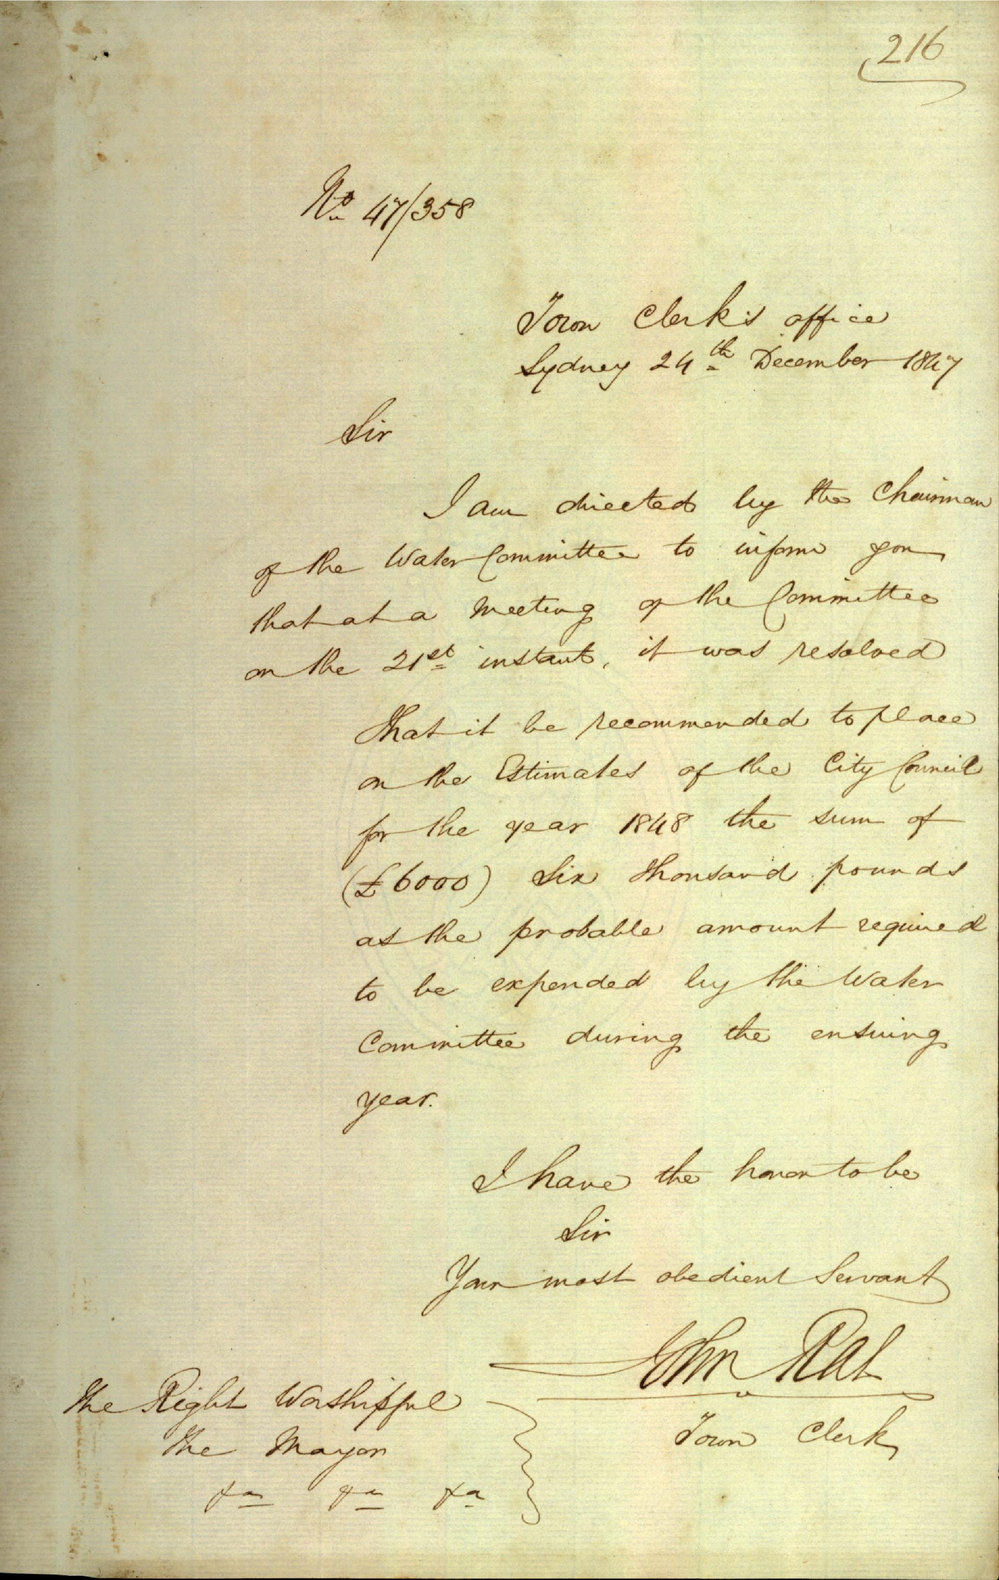 216
No 47/358
Town Clerk's office
Sydney 24th December 1847
Sir
I am directed by the Chairman
of the Water Committee to inform you
that at a Meeting of the Committee
on the 21st instant, it was resolved
that it be recommended to place
on the Estimates of the City Council
for the year 1848 the sum of
(£6000) Six thousand pounds
as the probable amount required
to be expended by the Water
Committee during the ensuing
year.
I have the honor to be
Sir
Your most obedient Servant
John Rae
Town Clerk
The Right Worshipful
The Mayor
&a &a &a